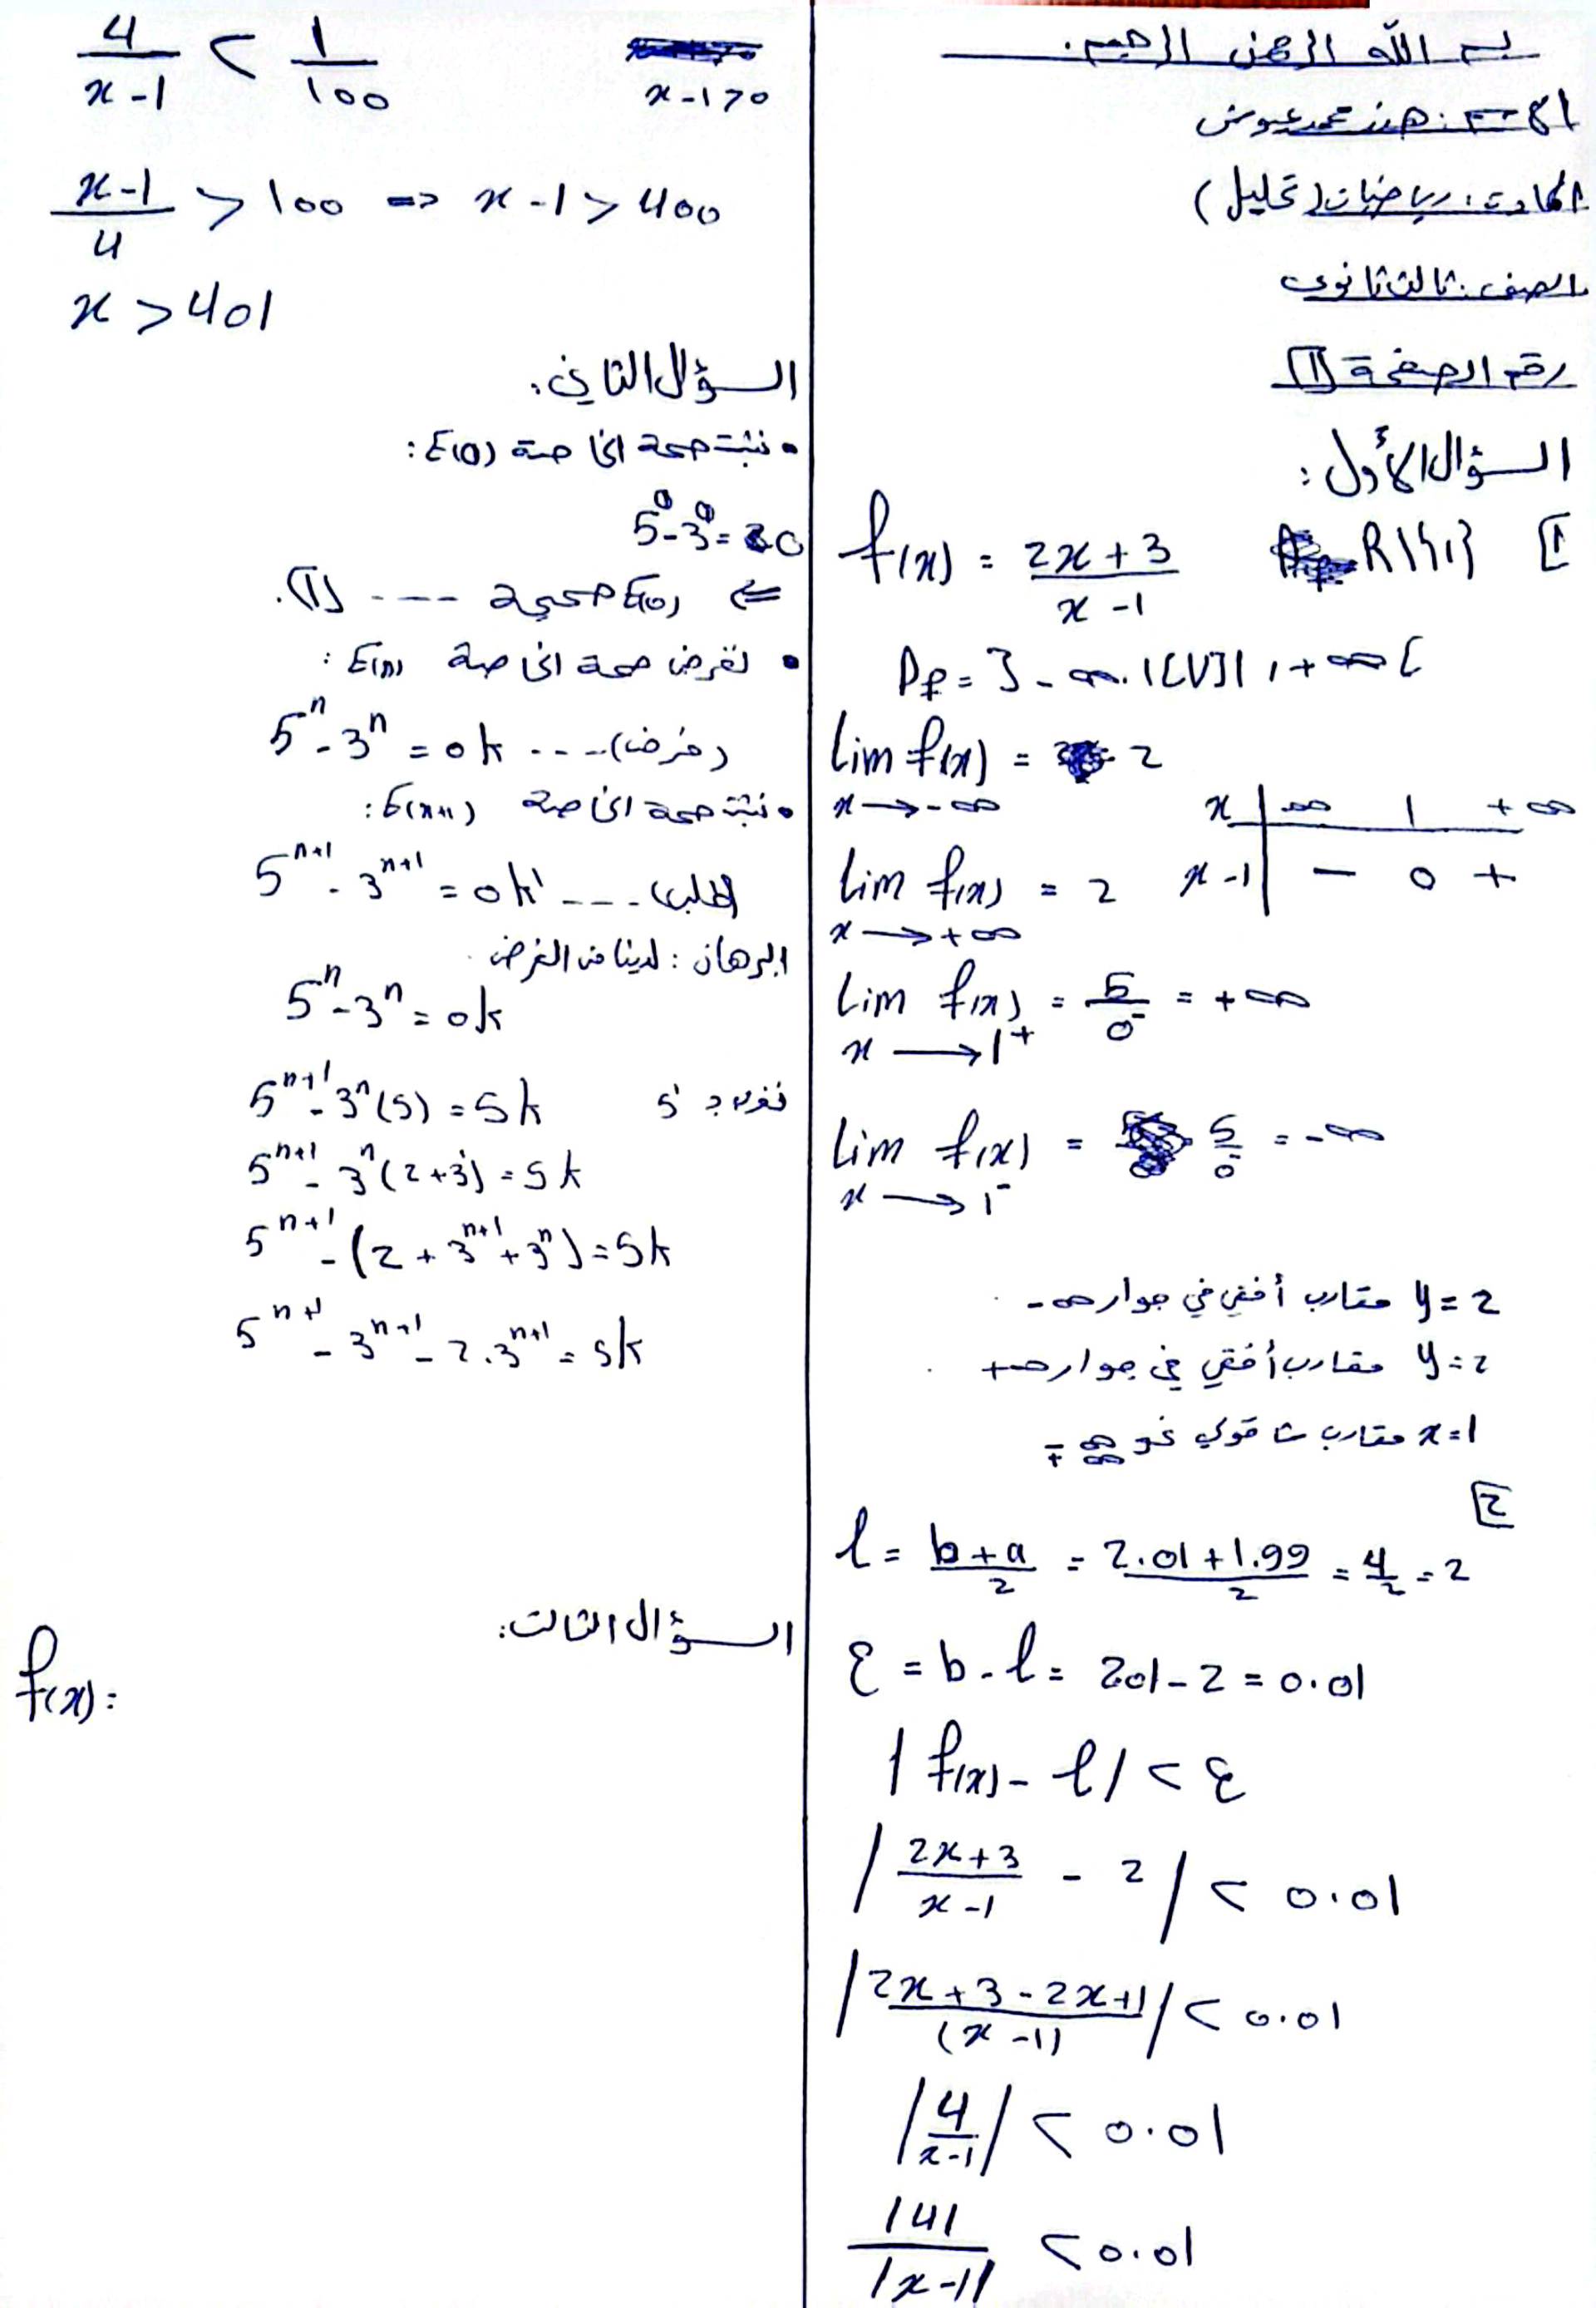 بسم الله الرحمن الرحيم.
الاسم: هند محمد عبوش
المادة: رياضيات (تحليل)
الصف: ثالث ثانوي
رقم الصفحة [1]
السؤال الأول:
[1] f(x) = \frac{2x+3}{x-1} R\{1}
Df = ]-∞, 1[ ∪ ]1, +∞[
lim f(x) = 2
x → -∞
x | -∞ 1 +∞
x-1 | - 0 +
lim f(x) = 2
x → +∞
lim f(x) = \frac{5}{0^-} = +∞
x → 1^+
lim f(x) = \frac{5}{0^-} = -∞
x → 1^-
y = 2 مقارب أفقي في جوار -∞
y = 2 مقارب أفقي في جوار +∞
x = 1 مقارب شاقولي نحو ∓∞
[2]
l = \frac{b+a}{2} = \frac{2.01+1.99}{2} = \frac{4}{2} = 2
ε = b - l = 2.01 - 2 = 0.01
|f(x) - l| < ε
|\frac{2x+3}{x-1} - 2| < 0.01
|\frac{2x+3-2x+1}{(x-1)}| < 0.01
|\frac{4}{x-1}| < 0.01
\frac{|4|}{|x-1|} < 0.01
\frac{4}{x-1} < \frac{1}{100} x-1>0
\frac{x-1}{4} > 100 => x-1 > 400
x > 401
السؤال الثاني:
• نثبت صحة الخاصة E(0):
5^0 - 3^0 = 0
⇐ E(0) صحيحة ---- (1).
• نفرض صحة الخاصة E(n):
5^n - 3^n = 0k ---- (فرض)
• نثبت صحة الخاصة E(n+1):
5^{n+1} - 3^{n+1} = 0k' ---- (طلب)
البرهان: لدينا من الفرض
5^n - 3^n = 0k
5^{n+1} - 3^n(5) = 5k نضرب بـ 5
5^{n+1} - 3^n(2+3) = 5k
5^{n+1} - (2 + 3^{n+1} + 3^n) = 5k
5^{n+1} - 3^{n+1} - 2.3^{n+1} = 5k
السؤال الثالث:
f(x) =